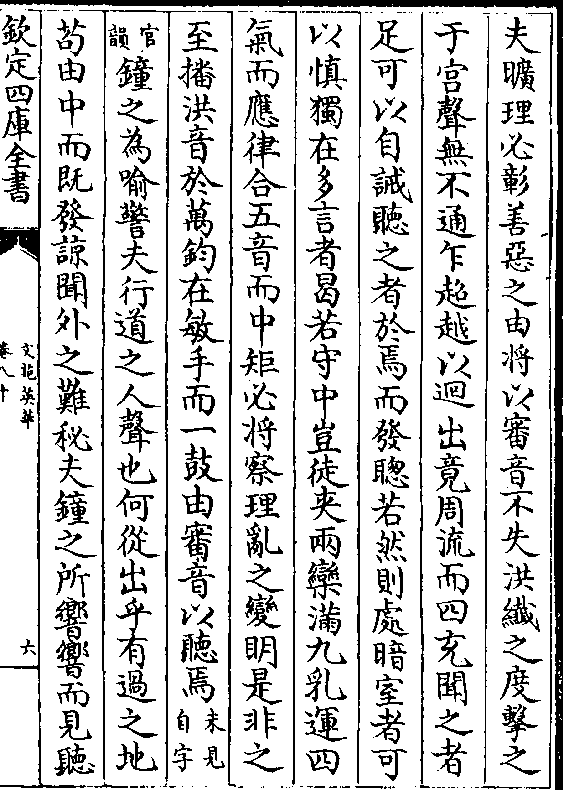 夫曠理必彰善惡之由將以審音不失洪纖之度擊之
于宫聲無不通乍超越以迴出竟周流而四充聞之者
足可以自誡聽之者於焉而發聰若然則處暗室者可
以慎獨在多言者曷若守中豈徒夾兩欒滿九乳運四
氣而應律合五音而中矩必将察理亂之變明是非之
至播洪音於萬鈞在敏手而一鼓由審音以聽焉未見自字
官韻鐘之為喻警夫行道之人聲也何從出乎有過之地
茍由中而既發諒聞外之難秘夫鐘之所響響而見聽
欽定四庫全書
文苑英華
卷八十
六